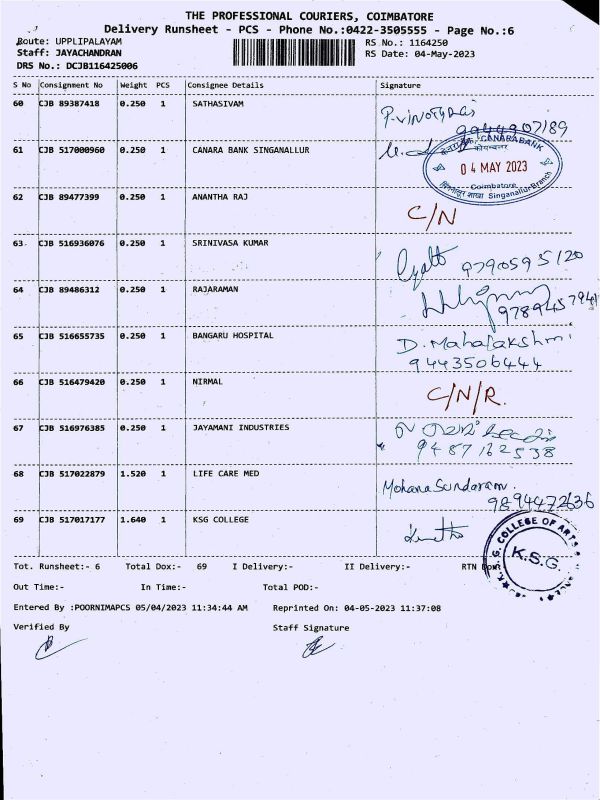 THE PROFESSIONAL COURIERS, COIMBATORE
Delivery Runsheet - PCS - Phone No.:0422-3505555 - Page No.:6
Route: UPPLIPALAYAM RS No.: 1164250
Staff: JAYACHANDRAN RS Date: 04-May-2023
DRS No.: DCJB116425006
S No Consignment No Weight PCS Consignee Details Signature
60 CJB 89387418 0.250 1 SATHASIVAM
61 CJB 517000960 0.250 1 CANARA BANK SINGANALLUR
CANARA BANK
04 MAY 2023
Coimbatore
Singanallur Branch
62 CJB 89477399 0.250 1 ANANTHA RAJ C/N
63 CJB 516936076 0.250 1 SRINIVASA KUMAR 9790595120
64 CJB 89486312 0.250 1 RAJARAMAN
65 CJB 516655735 0.250 1 BANGARU HOSPITAL D. Mahalakshmi
9443506444
66 CJB 516479420 0.250 1 NIRMAL C/N/R.
67 CJB 516976385 0.250 1 JAYAMANI INDUSTRIES
9487162538
68 CJB 517022879 1.520 1 LIFE CARE MED Mohana Sundaram.
9894472636
69 CJB 517017177 1.640 1 KSG COLLEGE
K.S.G. COLLEGE OF ARTS
K.S.G.
Tot. Runsheet:- 6 Total Dox:- 69 I Delivery:- II Delivery:- RTN
Out Time:- In Time:- Total POD:-
Entered By :POORNIMAPCS 05/04/2023 11:34:44 AM Reprinted On: 04-05-2023 11:37:08
Verified By Staff Signature